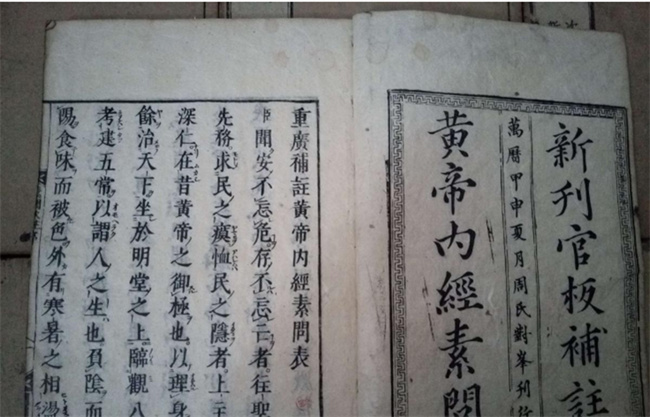 新刊官板補註
萬曆甲申夏月周氏對峯刊行
黃帝内經素問
重廣補註黃帝內經素問表
聞安不忘危存不忘亡者往聖
先務求民之瘼恤民之隱者上主
深仁在昔黃帝之御極也以理身
餘治天下坐於明堂之上臨觀八
考建五常以謂人之生也負陰而
陽食味而被色外有寒暑之相盪